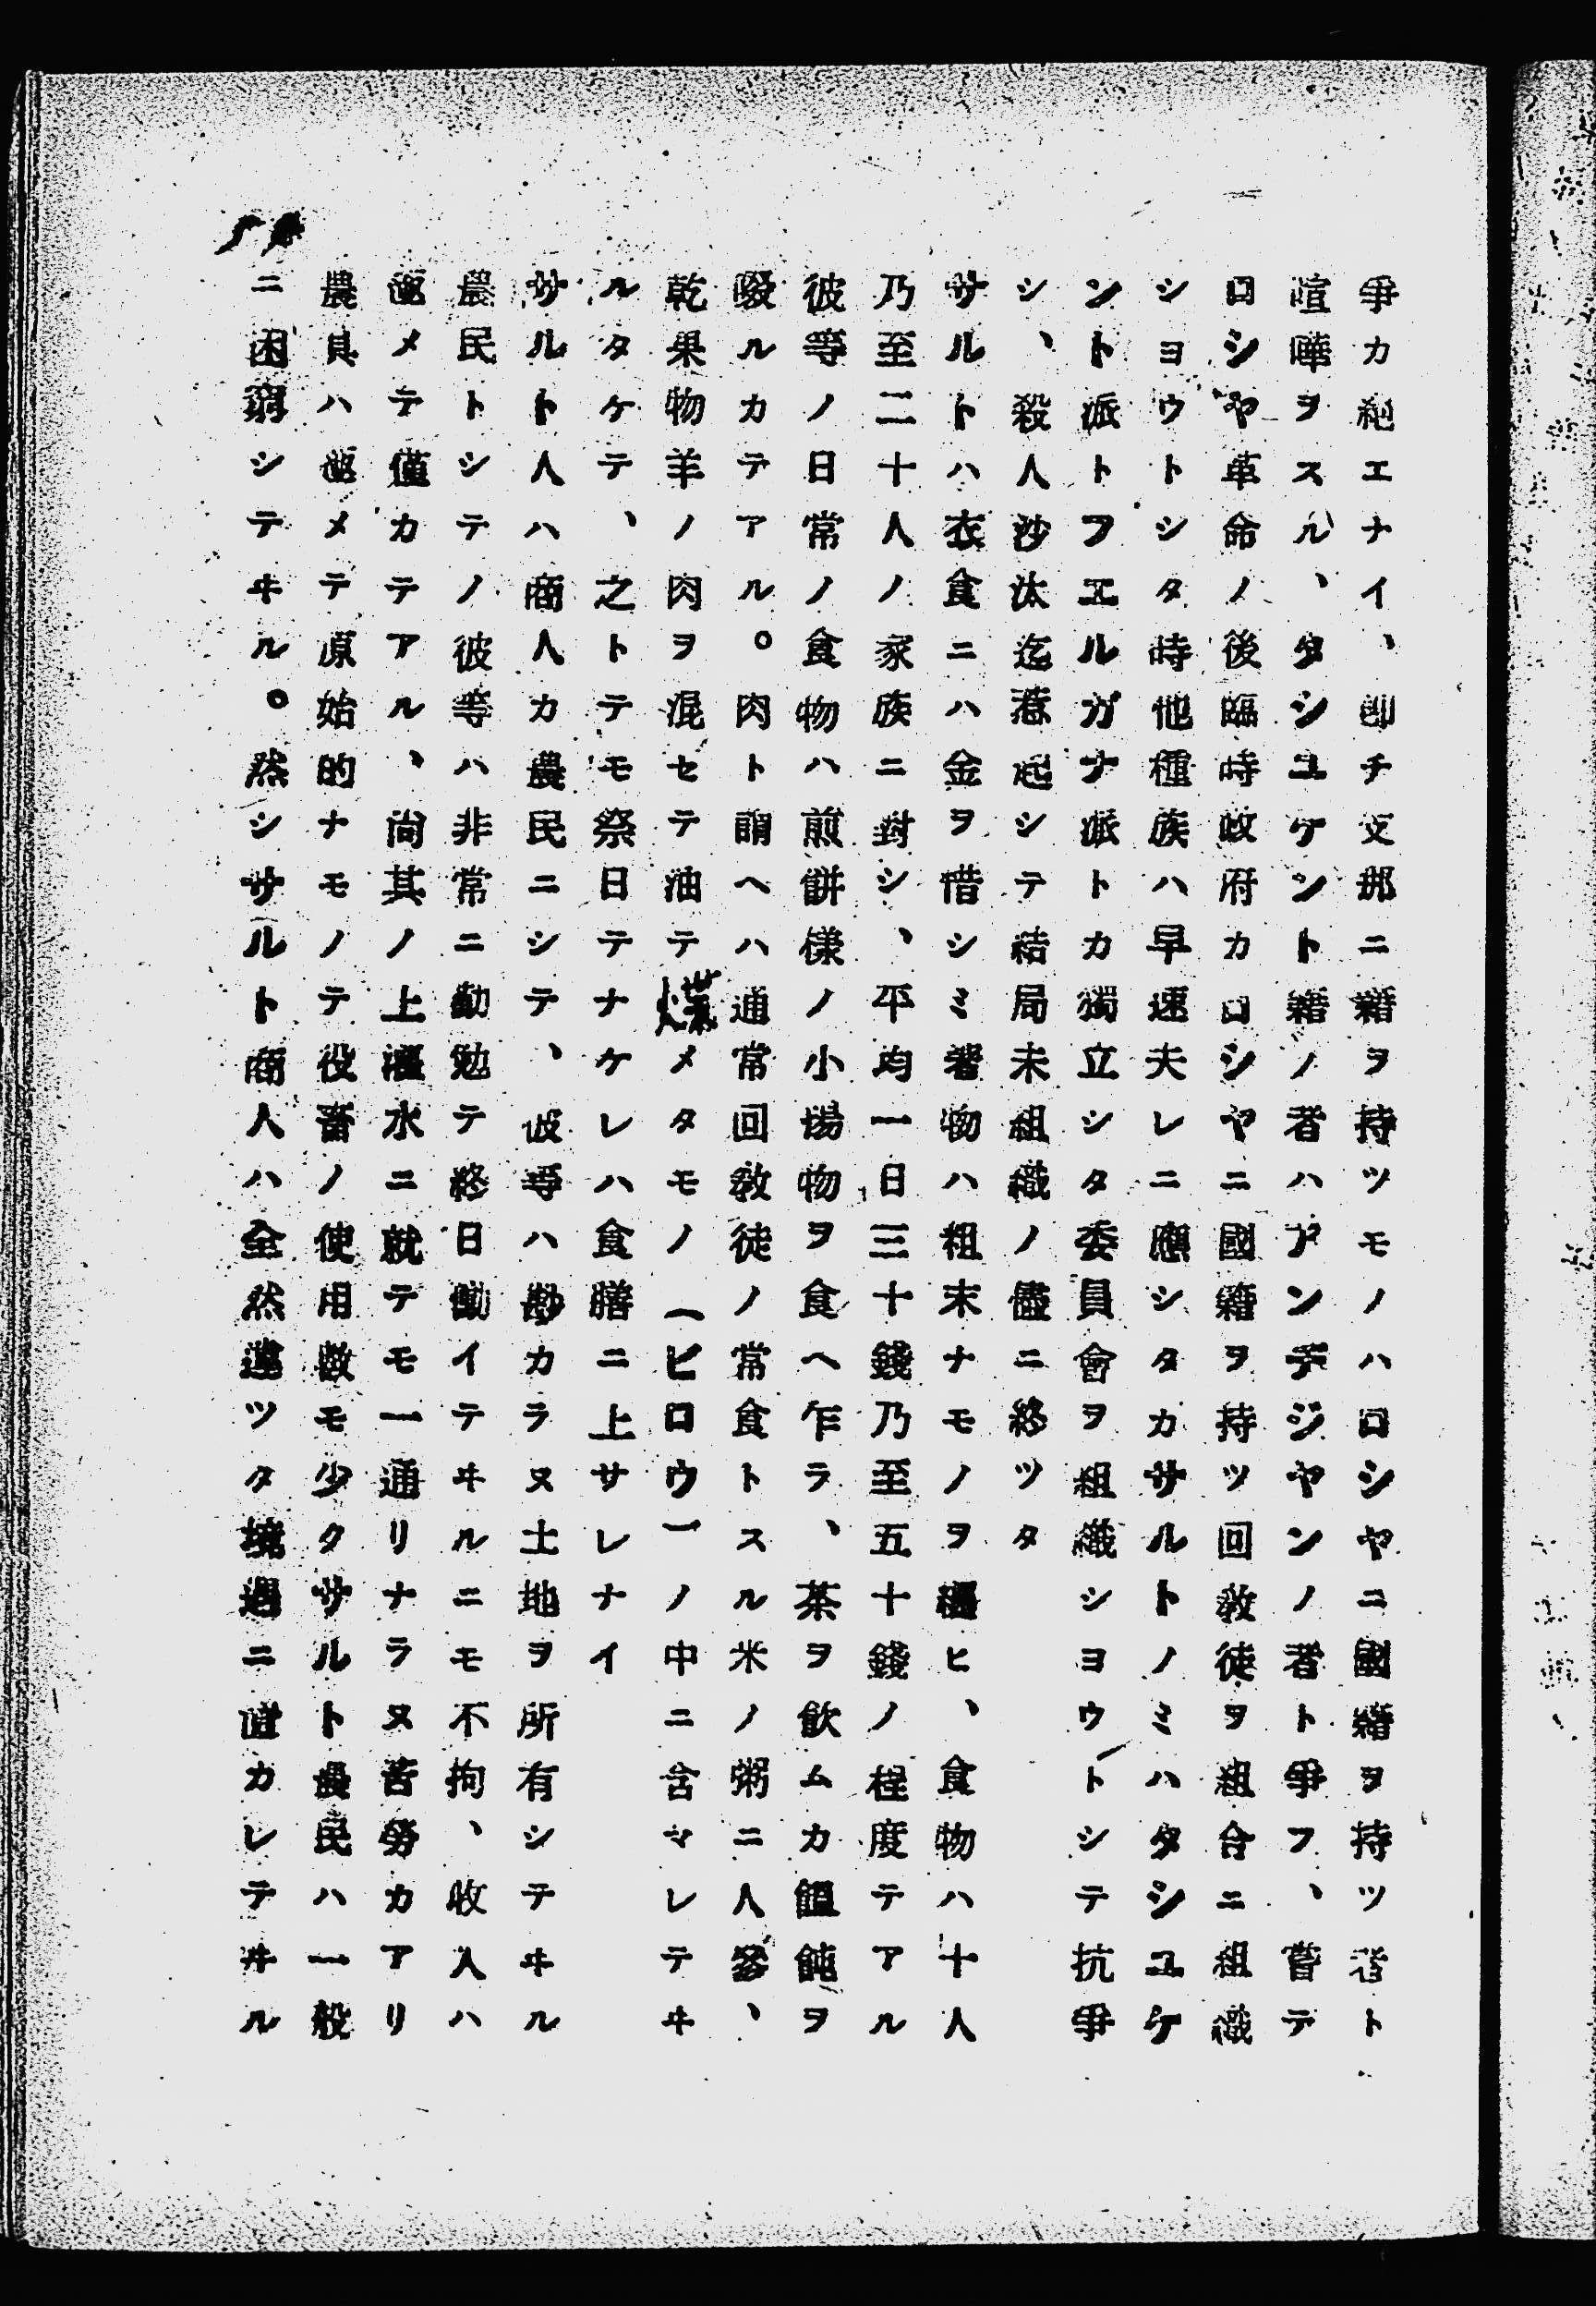 爭カ絶エナイ、卽チ支那ニ籍ヲ持ツモノハロシヤニ國籍ヲ持ツ者ト
喧嘩ヲスル、タシユケント籍ノ者ハアンデジヤンノ者ト爭フ、嘗テ
ロシヤ革命ノ後臨時政府カロシヤニ國籍ヲ持ツ回敎徒ヲ組合ニ組織
シヨウトシタ時他種族ハ早速夫レニ應シタカサルトノミハタシユケ
ント派トフエルガナ派トカ獨立シタ委員會ヲ組織シヨウトシテ抗爭
シ、殺人沙汰迄惹起シテ結局未組織ノ儘ニ終ツタ
サルトハ衣食ニハ金ヲ惜シミ着物ハ粗末ナモノヲ纒ヒ、食物ハ十人
乃至二十人ノ家族ニ對シ、平均一日三十錢乃至五十錢ノ程度テアル
彼等ノ日常ノ食物ハ煎餅樣ノ小場物ヲ食ヘ乍ラ、茶ヲ飮ムカ饂飩ヲ
啜ルカテアル。肉ト謂ヘハ通常回敎徒ノ常食トスル米ノ粥ニ人參、
乾果物羊ノ肉ヲ混セテ油テ煠メタモノ(ピロウ)ノ中ニ含マレテヰ
ルタケテ、之トテモ祭日テナケレハ食膳ニ上サレナイ
サルト人ハ商人カ農民ニシテ、彼等ハ尠カラヌ土地ヲ所有シテヰル
農民トシテノ彼等ハ非常ニ勤勉テ終日働イテヰルニモ不拘、收入ハ
極メテ僅カテアル、尙其ノ上灌水ニ就テモ一通リナラヌ苦勞カアリ
農具ハ極メテ原始的ナモノテ役畜ノ使用數モ少クサルト農民ハ一般
ニ困窮シテヰル。然シサルト商人ハ全然違ツタ境遇ニ置カレテヰル